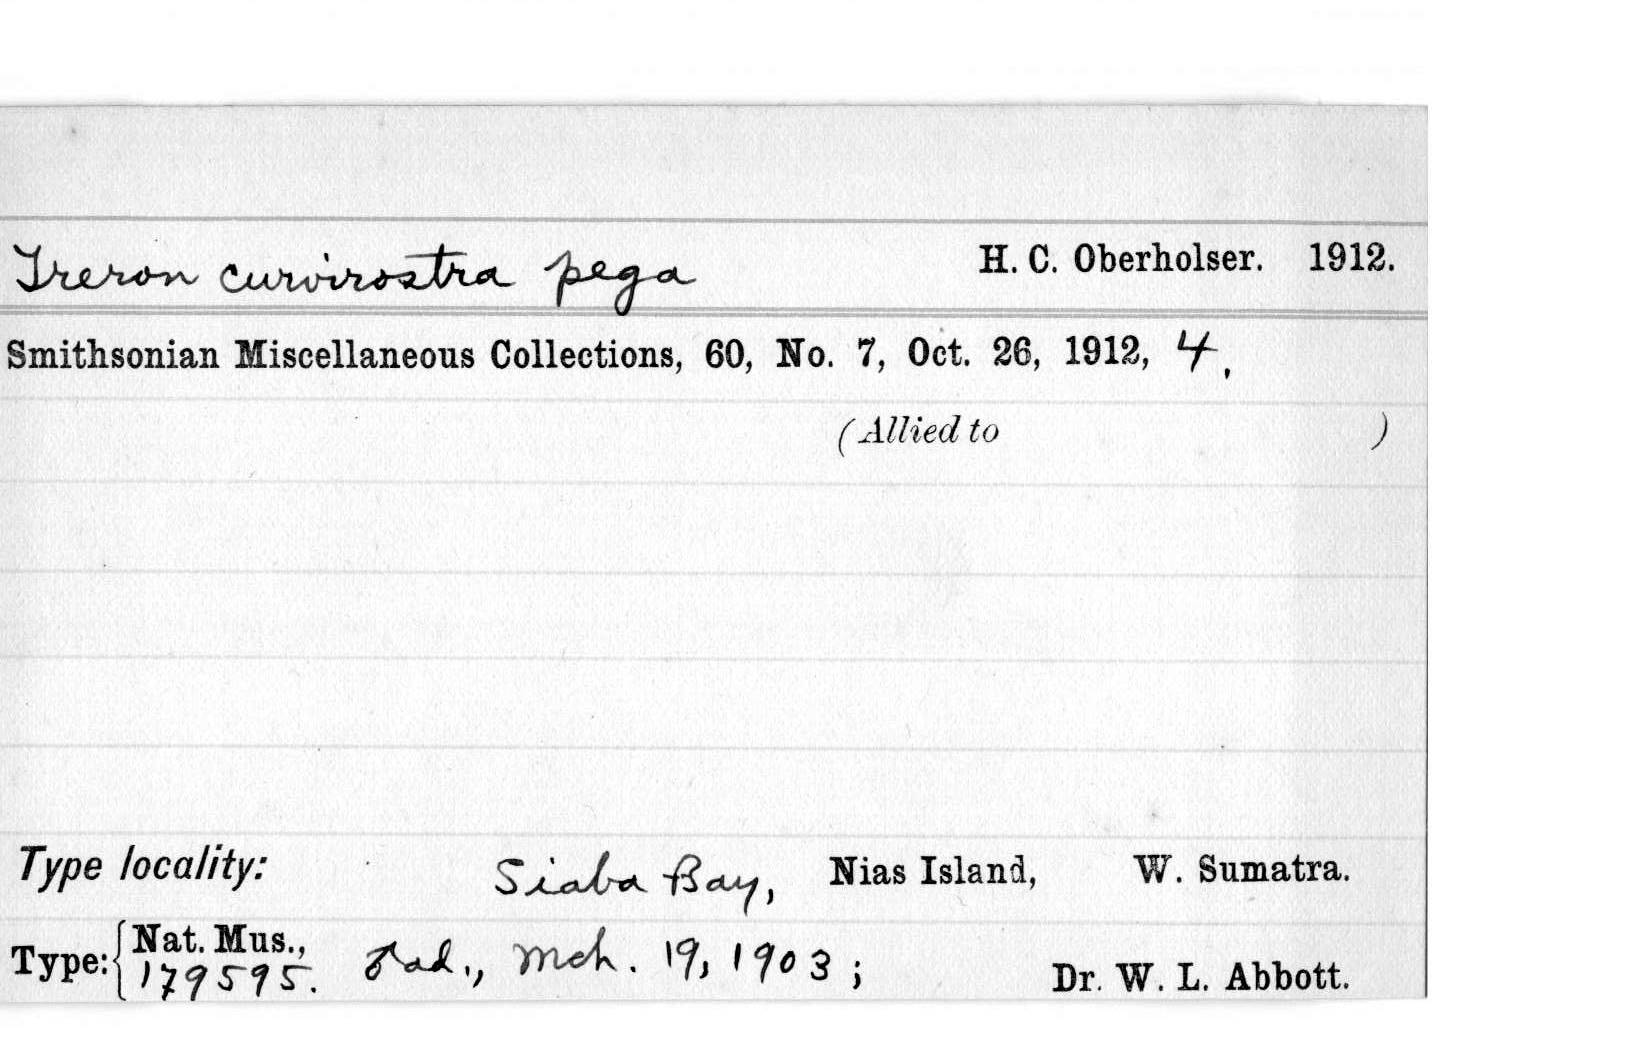 Treron curvirostra pega H. C. Oberholser. 1912.
Smithsonian Miscellaneous Collections, 60, No. 7, Oct. 26, 1912, 4.
(Allied to )
Type locality: Siaba Bay, Nias Island, W. Sumatra.
Type: { Nat. Mus., 179595. ♂ ad., Mch. 19, 1903; Dr. W. L. Abbott.